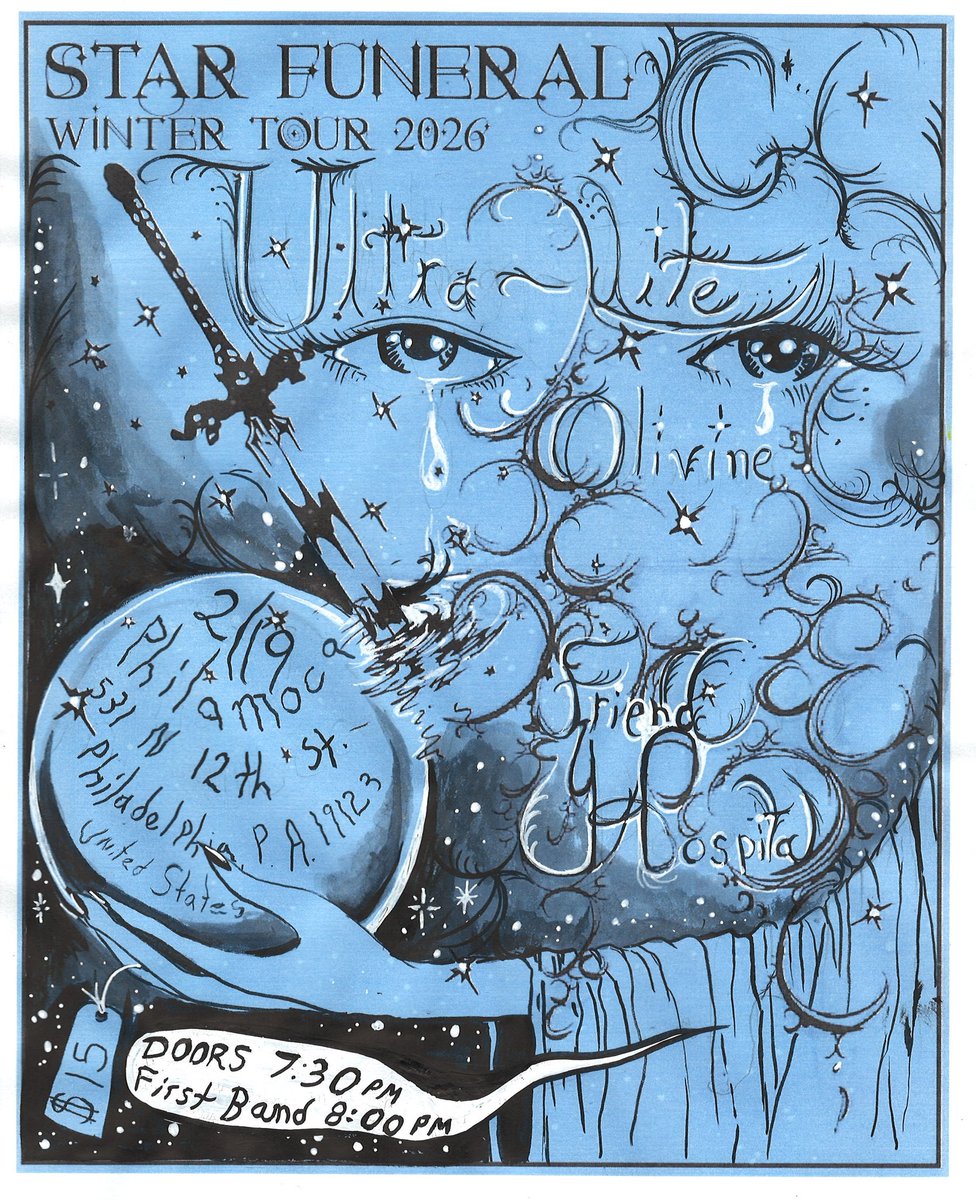 STAR FUNERAL
WINTER TOUR 2026
Ultra-Lite
Olivine
Friend
Hospital
2/19
Philamoca
531 N 12th St.
Philadelphia, P.A. 19123
United States
$15
DOORS 7:30PM
First Band 8:00PM